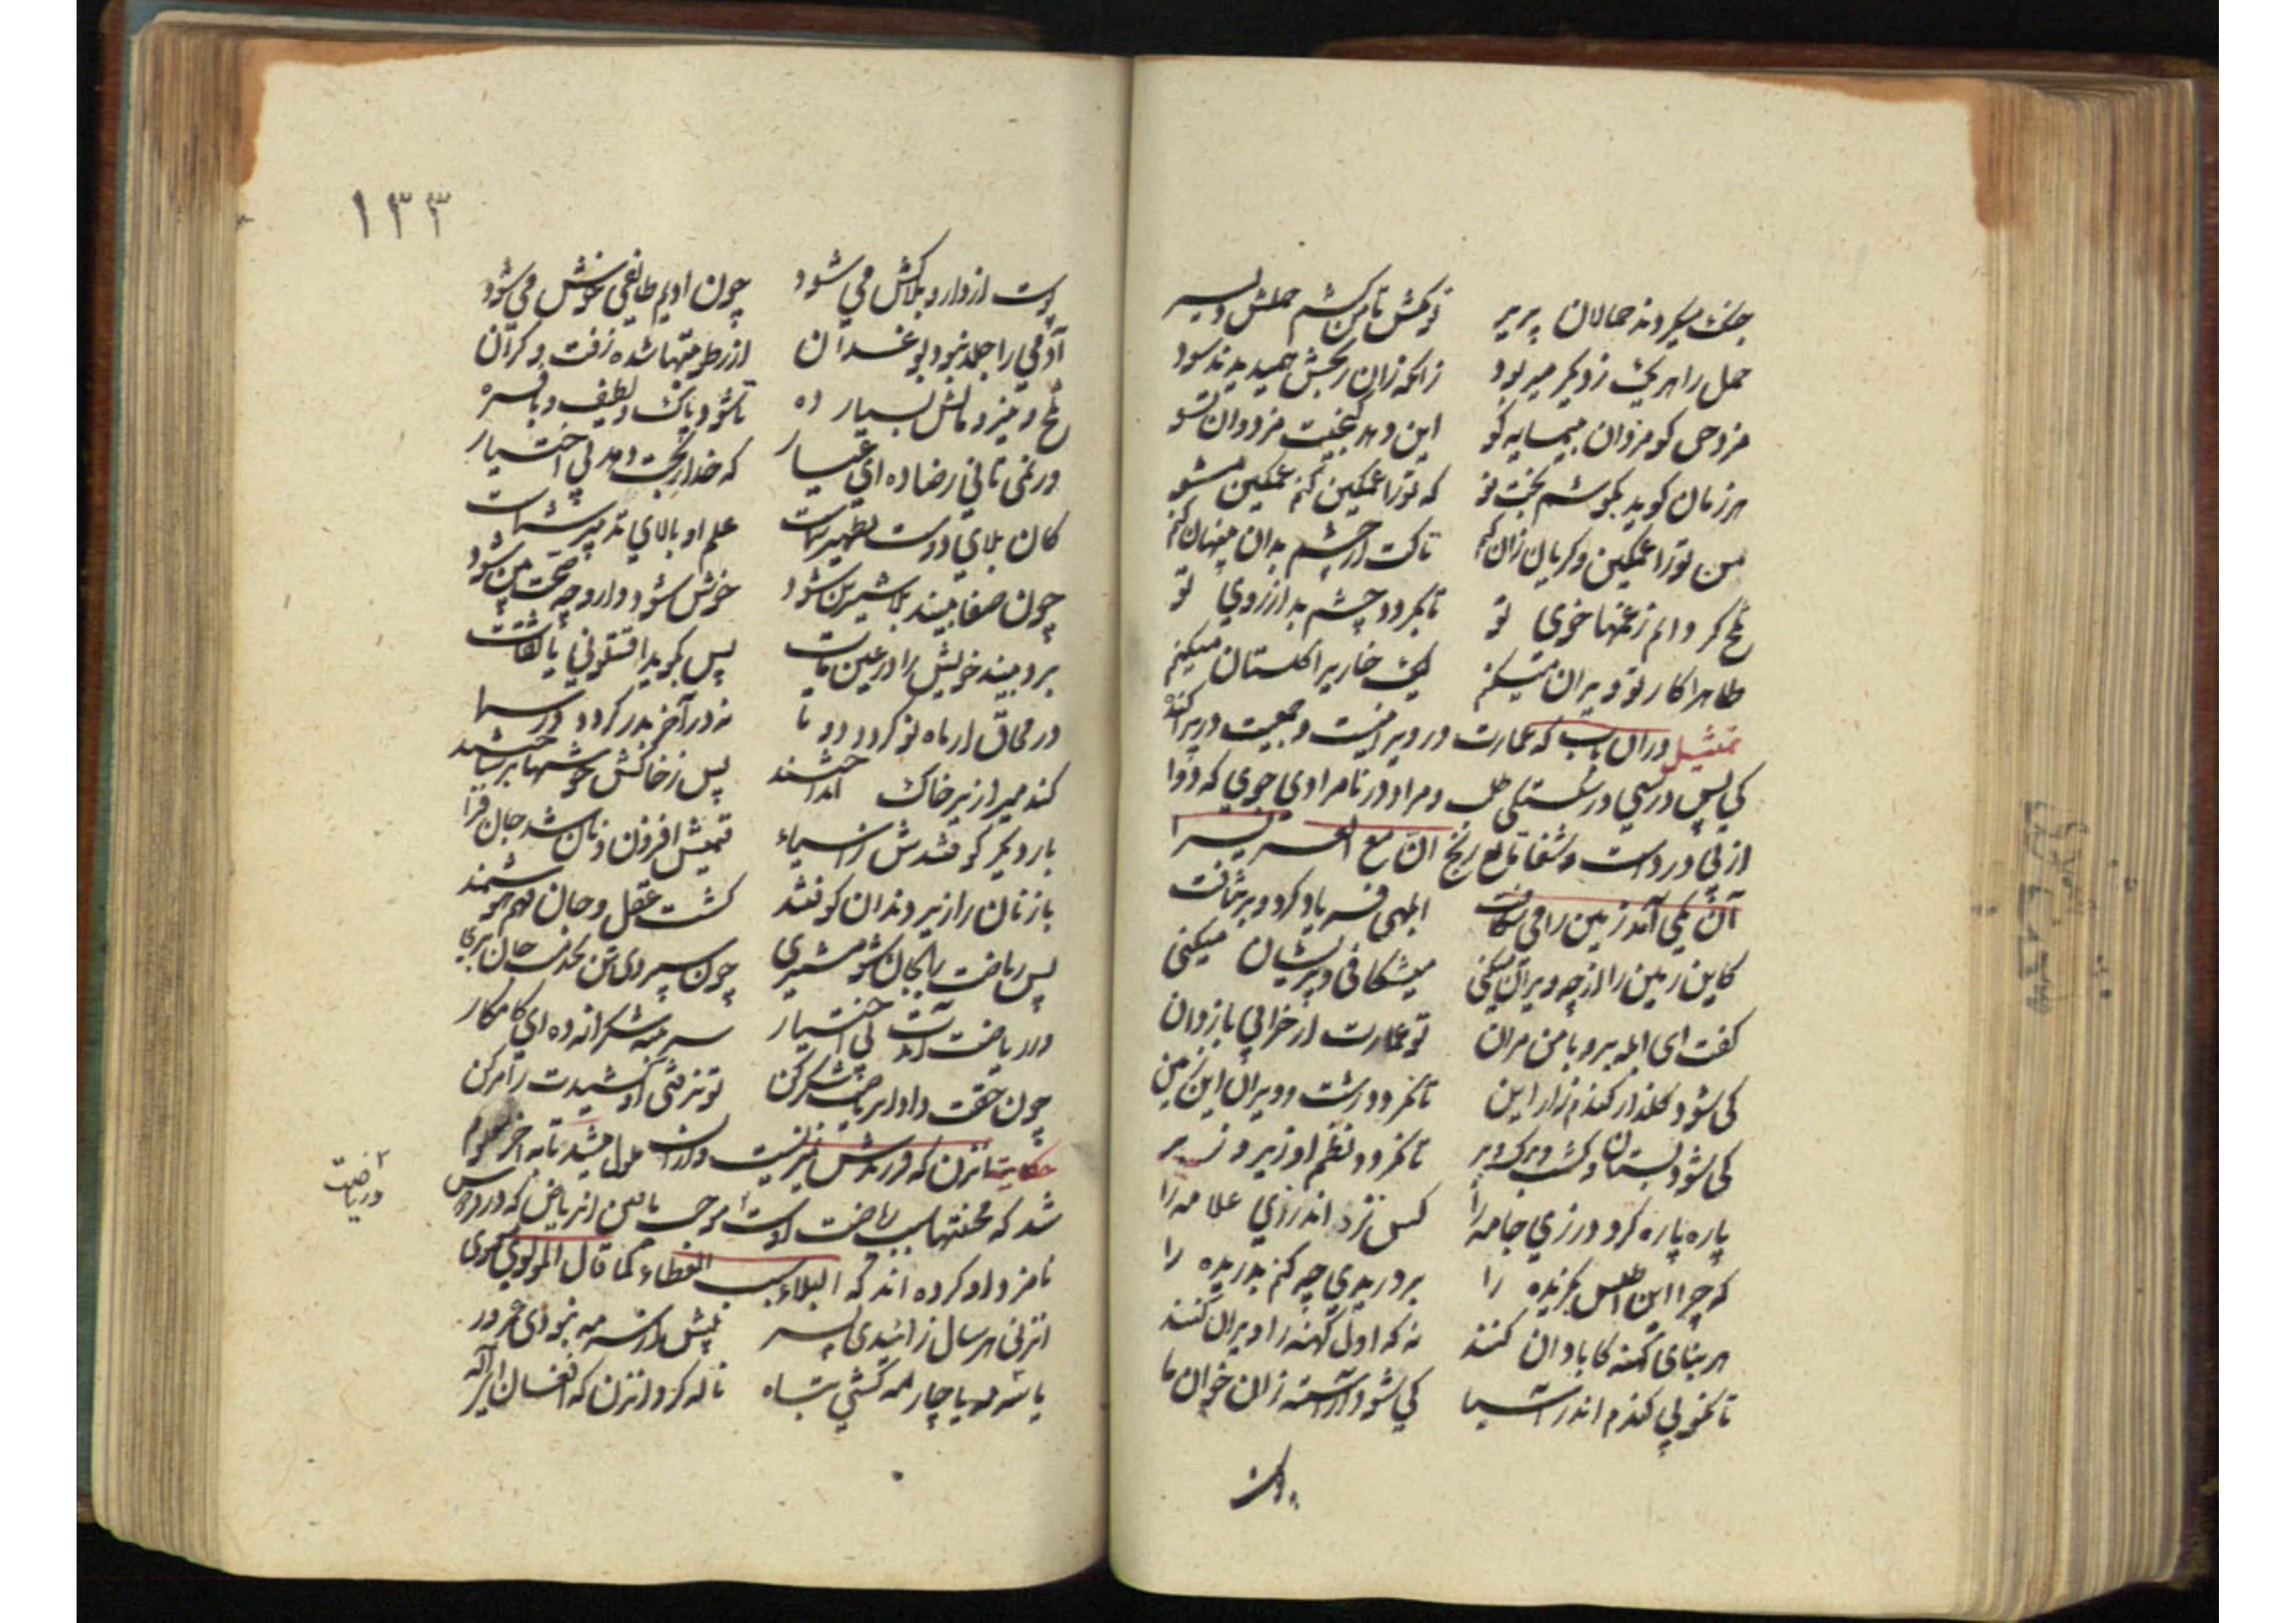 جنگ میکردند حمالان پریر تو مکش تا من کشم حملش دلیر
حمل را هر یک ز دیگر میربود زانکه زان رنجش همیدیدند سود
مزد حق کو مزد آن بیمایه کو این دهد گنجیت مزد و آن تسو
هر زمان کوید بکوشم بخت تو که تو را غمگین کنم غمگین مشو
من تو را غمگین و کریان زان کنم تا کت از چشم بدان پنهان کنم
تلخ کردانم ز غمها خوی تو تا بکردد چشم بد از روی تو
ظاهرا کار تو ویران میکنم لیک خاریرا گلستان میکنم
تمثیل در آن باب که عمارت در ویرانیست و جمعیت در پراکندگی
پس درستی در شکستگی طلب و مراد در نامرادی جوی که دوا
از پی درد است و شفا تابع رنج ان مع العسر یسرا
آن یکی آمد زمین را می شکافت ابلهی فریاد کرد و بر نتافت
کاین زمین را از چه ویران میکنی میشکافی و پریشان میکنی
کفت ای ابله برو با من مران تو عمارت از خرابی باز دان
کی شود گلزار گندم زار این تا نکردد زشت و ویران این زمین
کی شود بستان و کشت و برک و بر تا نکردد نظم او زیر و زبر
پاره پاره کرد درزی جامه را کس نزد اندرزی علامه را
که چرا این اطلس بکزیده را بر دریدی چه کنم بدریده را
هر بنای کهنه کابادان کنند نه که اول کهنه را ویران کنند
تا نکوبی گندم اندر آسیا کی شود آراسته زان خوان ما
١٣٣
پوست از دارو بلاکش می شود چون ادیم طایفی خوش می شود
آدمی را جلد نبود بو غدان از رطوبتها شده زفت و گران
تلخ و تیز و مالش بسیار ده تا شود پاک و لطیف و با فره
ور نمی تانی رضا ده ای عیار که خدا رنجت دهد بی اختیار
کان بلای دوست تطهیر شماست علم او بالای تدبیر شماست
چون صفا بیند بلا شیرین شود خوش شود دارو چو صحت بین شود
برد بیند خویش را در عین مات پس بکوید اقتلونی یا ثقات
در محاق ار ماه نو کردد دو تا نه در آخر بدر کردد در سما
گندمیرا زیر خاک انداختند پس ز خاکش خوشها بر ساختند
بار دیگر کوفتندش ز آسیاء قیمتش افزون و نان شد جان فزا
باز نان را زیر دندان کوفتند کشت عقل و جان فهم هوشمند
پس ریاضت را بجان شو مشتری چون سپردی تن بخدمت جان بری
ور ریاضت آیدت بی اختیار سر بنه شکرانه ده ای کامکار
چون حقت داد آن ریاضت شکر کن تو نکردی او کشیدت ز امر کن
حکایت آن زن که فرزندش نمیزیست و از آن ملول میشد تا به آخر معلوم
شد که محنتها سبب ریاضت اوست
و ریاضت
نامزد او کرده اند که البلاء سبب العطاء کما قال المولوی المعنوی
آن زنی هر سال زائیدی پسر بیش از سه مه نبودی عمرور
یا سه مه یا چار مه گشتی تباه ناله کرد آن زن که افغان ای اله